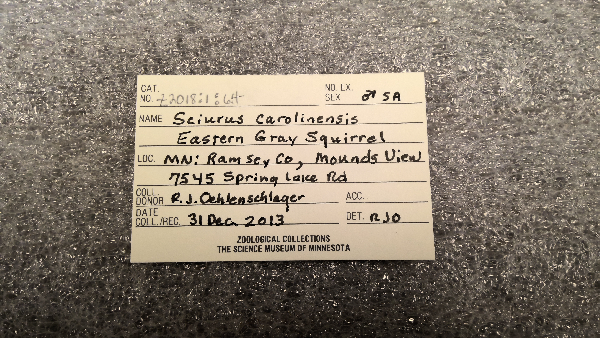 CAT. NO. Z2018:1:64 NO. EX.
SEX ♂ SA
NAME Sciurus carolinensis
Eastern Gray Squirrel
LOC. MN: Ramsey Co, Mounds View
7545 Spring Lake Rd
COLL. DONOR R.J. Oehlenschlager ACC.
DATE COLL./REC. 31 Dec 2013 DET. RJO
ZOOLOGICAL COLLECTIONS
THE SCIENCE MUSEUM OF MINNESOTA